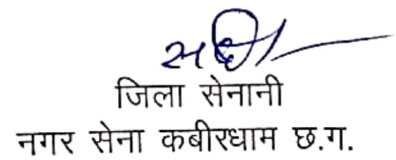 जिला सेनानी
नगर सेना कबीरधाम छ.ग.